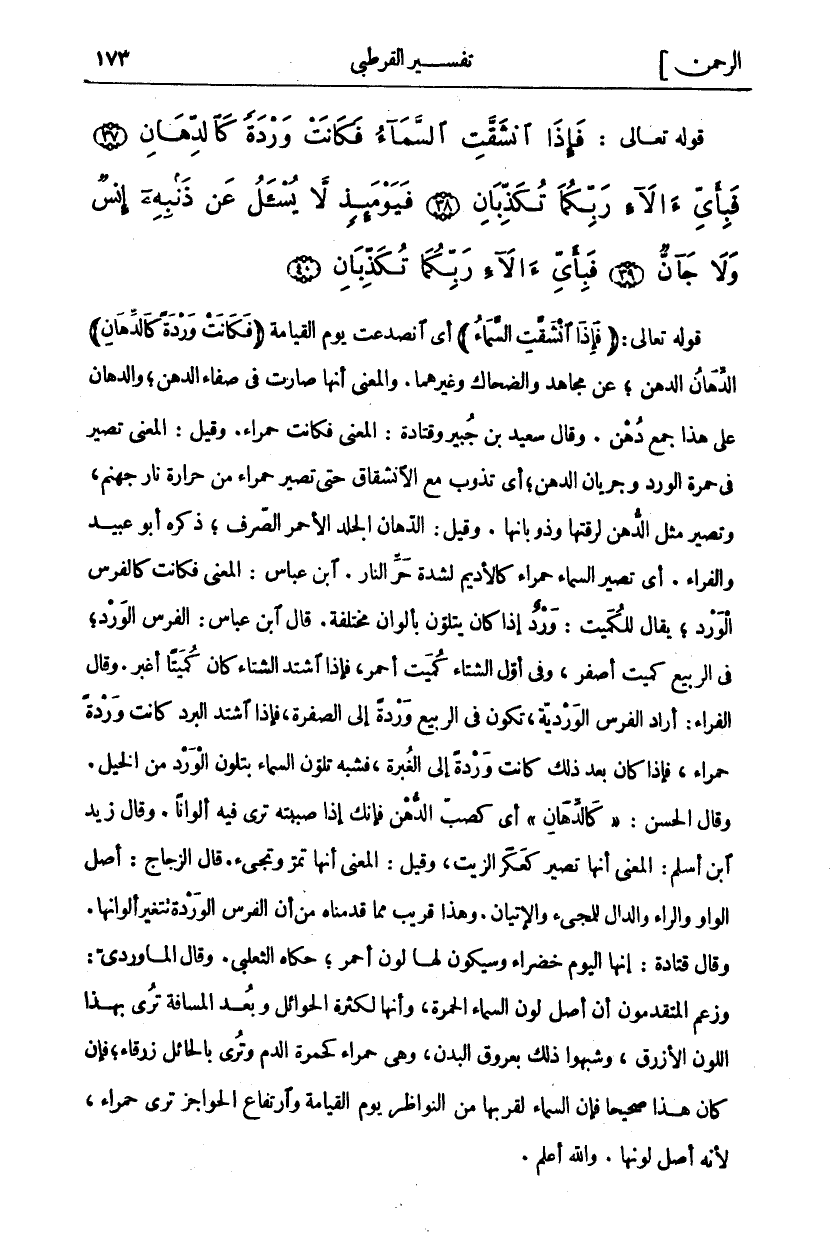 الرحمن ] تفسير القرطبى ١٧٣
قوله تعالى : فَإِذَا ٱنشَقَّتِ ٱلسَّمَآءُ فَكَانَتْ وَرْدَةً كَٱلدِّهَانِ ۝٣٧
فَبِأَىِّ ءَالَآءِ رَبِّكُمَا تُكَذِّبَانِ ۝٣٨ فَيَوْمَئِذٍ لَّا يُسْـَٔلُ عَن ذَنۢبِهِۦٓ إِنسٌ
وَلَا جَآنٌّ ۝٣٩ فَبِأَىِّ ءَالَآءِ رَبِّكُمَا تُكَذِّبَانِ ۝٤٠
قوله تعالى: ﴿ فَإِذَا ٱنْشَقَّتِ السَّمَاءُ ﴾ أى ٱنصدعت يوم القيامة ﴿فَكَانَتْ وَرْدَةً كَالدِّهَانِ﴾
الدِّهَانُ الدهن ؛ عن مجاهد والضحاك وغيرهما. والمعنى أنها صارت فى صفاء الدهن؛ والدهان
على هذا جمع دُهْن . وقال سعيد بن جُبير وقتادة : المعنى فكانت حمراء. وقيل : المعنى تصير
فى حمرة الورد وجريان الدهن؛ أى تذوب مع الٱنشقاق حتى تصير حمراء من حرارة نار جهنم،
وتصير مثل الدُّهن لرقتها وذوبانها . وقيل: الدّهان الجلد الأحمر الصّرف ؛ ذكره أبو عبيد
والفراء . أى تصير السماء حمراء كالأديم لشدة حَرِّ النار . ٱبن عباس : المعنى فكانت كالفرس
الْوَرْد ؛ يقال للكُمَيت : وَرْدٌ إذا كان يتلوّن بألوان مختلفة. قال ٱبن عباس: الفرس الوَرْد؛
فى الربيع كميت أصفر ، وفى أوّل الشتاء كُمَيت أحمر، فإذا ٱشتد الشتاء كان كُمَيتًا أغبر. وقال
الفراء: أراد الفرس الوَرْديّة، تكون فى الربيع وَرْدةً إلى الصفرة، فإذا ٱشتد البرد كانت وَرْدةً
حمراء ، فإذا كان بعد ذلك كانت وَرْدةً إلى الغُبرة، فشبه تلوّن السماء بتلون الْوَرْد من الخيل.
وقال الحسن : « كَالدِّهَانِ » أى كصبّ الدُّهْن فإنك إذا صببته ترى فيه ألوانًا . وقال زيد
ٱبن أسلم: المعنى أنها تصير كعَكَر الزيت، وقيل : المعنى أنها تمرّ وتجىء. قال الزجاج : أصل
الواو والراء والدال للمجىء والإتيان. وهذا قريب مما قدمناه من أن الفرس الوَرْدة تتغير ألوانها.
وقال قتادة : إنها اليوم خضراء وسيكون لها لون أحمر ؛ حكاه الثعلبى. وقال الماوردىّ:
وزعم المتقدمون أن أصل لون السماء الحمرة، وأنها لكثرة الحوائل وبُعد المسافة تُرى بهذا
اللون الأزرق ، وشبهوا ذلك بعروق البدن، وهى حمراء كحمرة الدم وتُرى بالحائل زرقاء؛ فإن
كان هذا صحيحا فإن السماء لقربها من النواظر يوم القيامة وٱرتفاع الحواجز ترى حمراء ،
لأنه أصل لونها . والله أعلم .